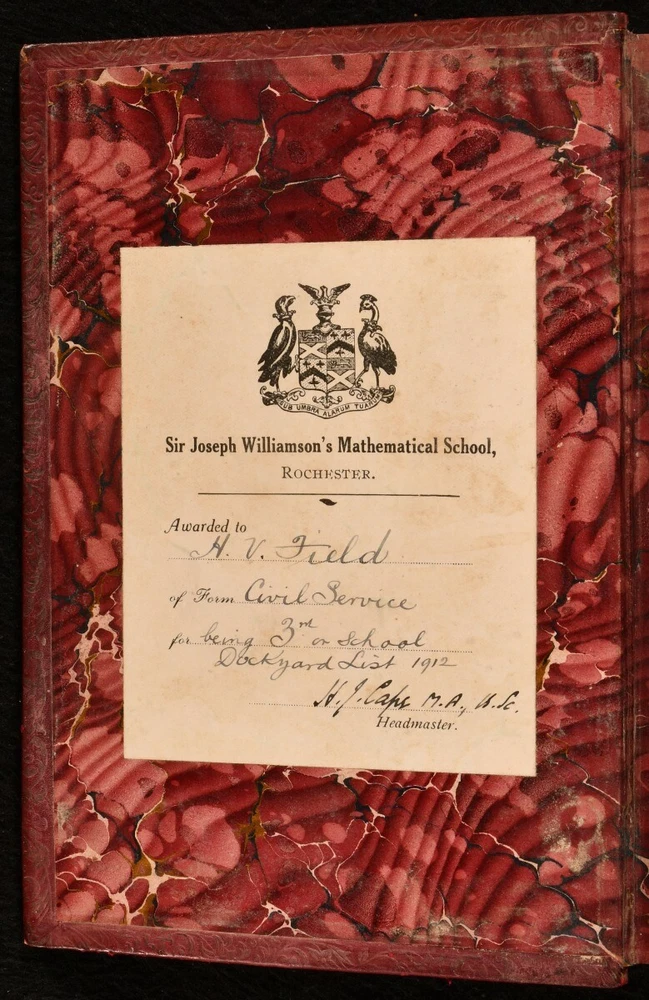 SUB UMBRA ALARUM TUARUM
Sir Joseph Williamson's Mathematical School,
ROCHESTER.
Awarded to
H. V. Field
of Form Civil Service
for being 3rd on School
Dockyard List 1912
H. J. Cape M.A., B.Sc.
Headmaster.